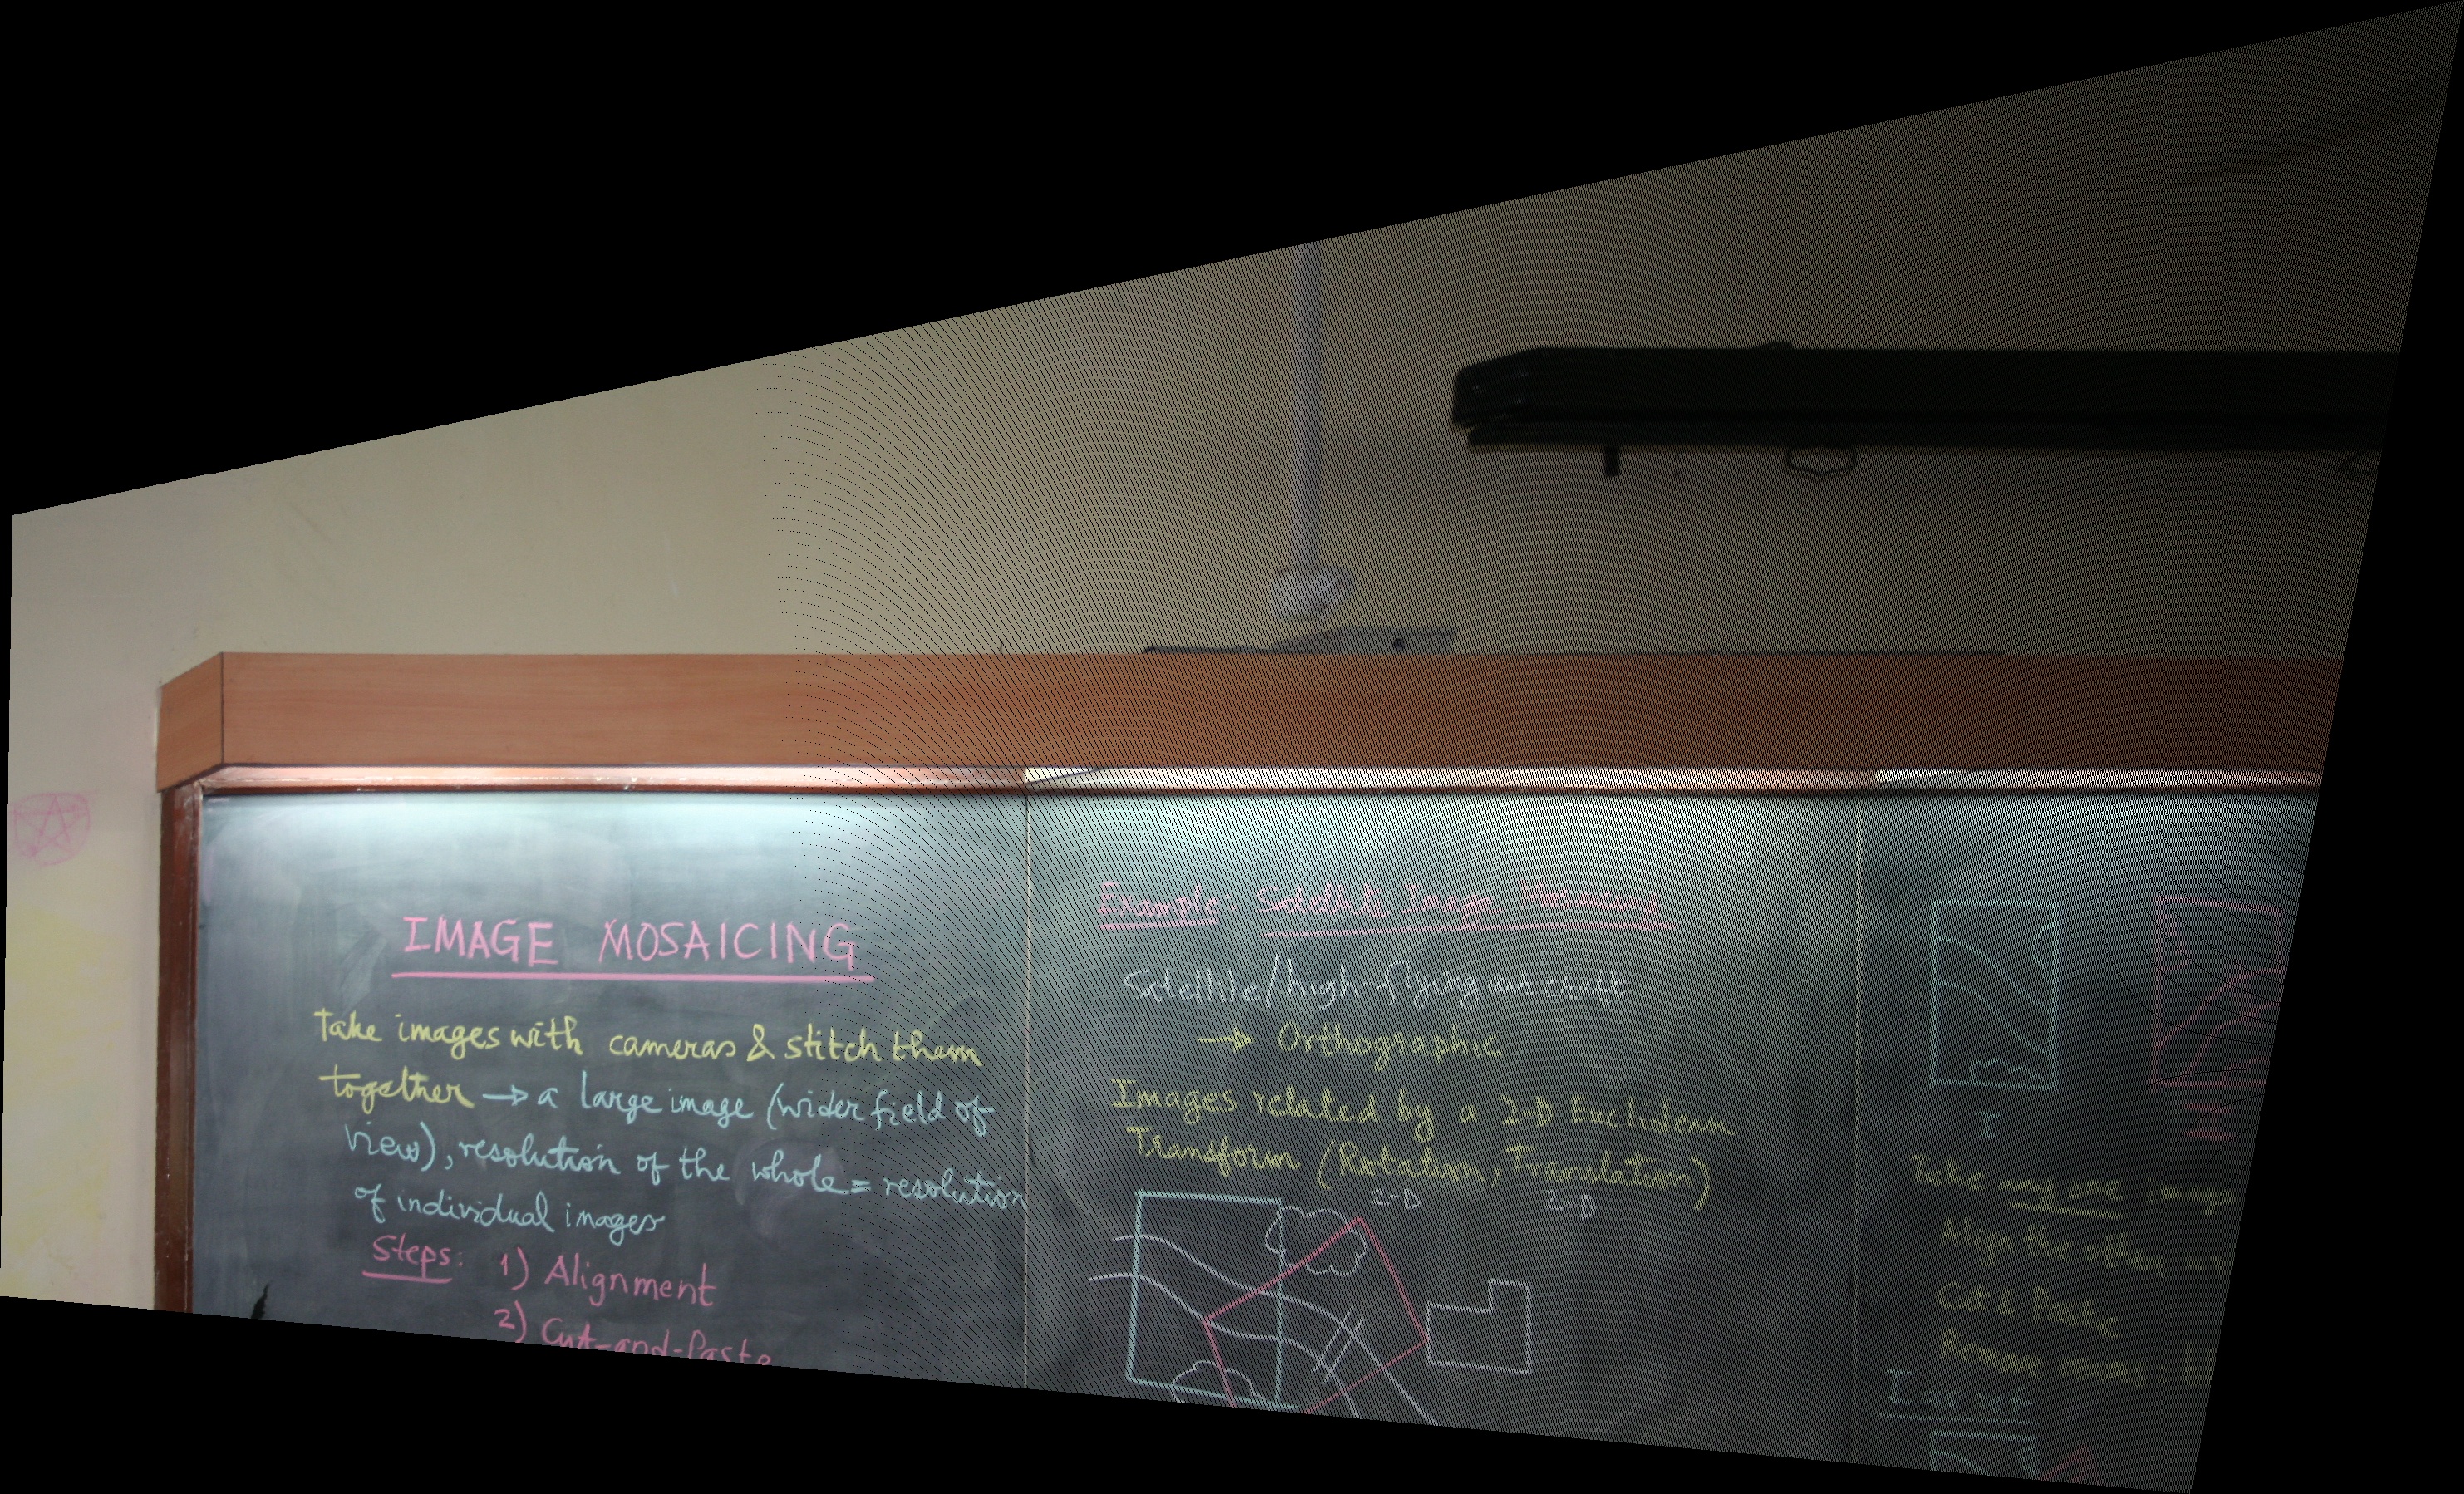 IMAGE MOSAICING
Take images with cameras & stitch them
together → a large image (wider field of
view), resolution of the whole = resolution
of individual images
Steps: 1) Alignment
2) Cut-and-Paste
Example: Satellite Image Mosaicing
Satellite/high-flying aircraft
→ Orthographic
Images related by a 2-D Euclidean
Transform (Rotation, Translation)
2-D 2-D
I
Take any one image
Align the other
Cut & Paste
Remove seams:
I as ref